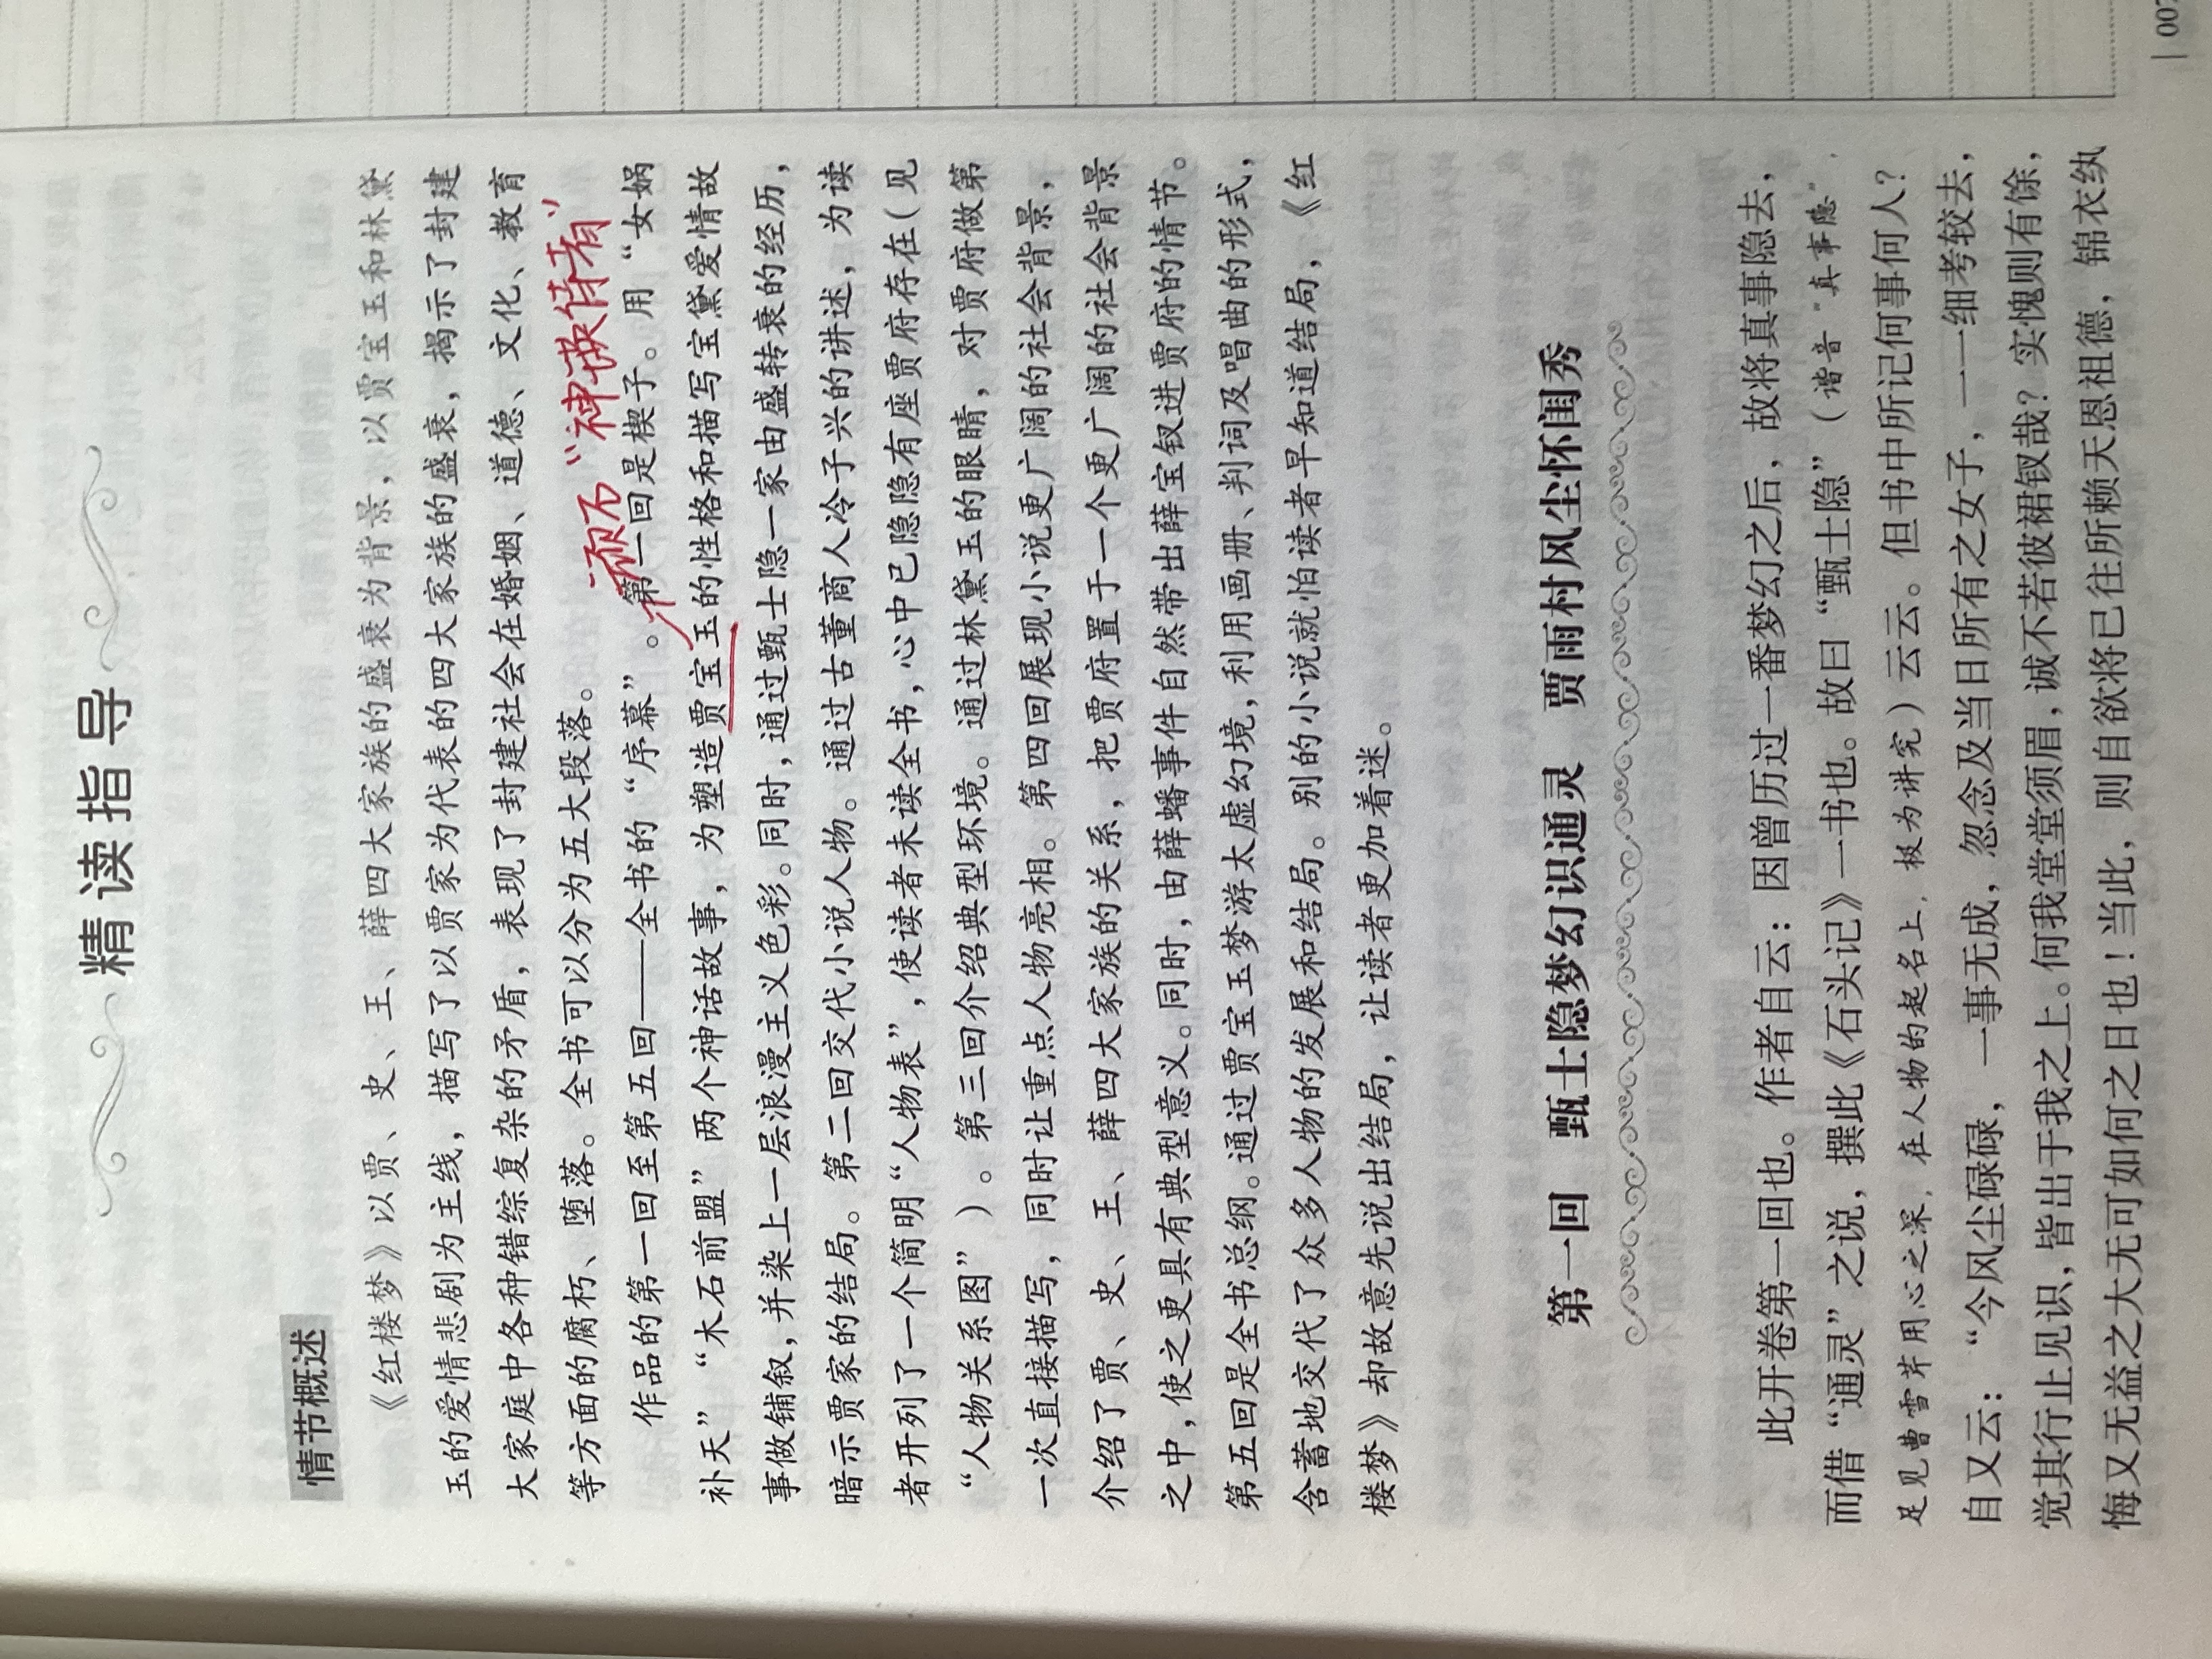 精读指导
情节概述
《红楼梦》以贾、史、王、薛四大家族的盛衰为背景,以贾宝玉和林黛
玉的爱情悲剧为主线,描写了以贾家为代表的四大家族的盛衰,揭示了封建
大家庭中各种错综复杂的矛盾,表现了封建社会在婚姻、道德、文化、教育
等方面的腐朽、堕落。全书可以分为五大段落。
“神瑛侍者”
作品的第一回至第五回——全书的“序幕”。第一回是楔子。用“女娲
补天”“木石前盟”两个神话故事,为塑造贾宝玉的性格和描写宝黛爱情故
事做铺叙,并染上一层浪漫主义色彩。同时,通过甄士隐一家由盛转衰的经历,
暗示贾家的结局。第二回交代小说人物。通过古董商人冷子兴的讲述,为读
者开列了一个简明“人物表”,使读者未读全书,心中已隐隐有座贾府存在(见
“人物关系图”)。第三回介绍典型环境。通过林黛玉的眼睛,对贾府做第
一次直接描写,同时让重点人物亮相。第四回展现小说更广阔的社会背景,
介绍了贾、史、王、薛四大家族的关系,把贾府置于一个更广阔的社会背景
之中,使之更具有典型意义。同时,由薛蟠事件自然带出薛宝钗进贾府的情节。
第五回是全书总纲。通过贾宝玉梦游太虚幻境,利用画册、判词及唱曲的形式,
含蓄地交代了众多人物的发展和结局。别的小说就怕读者早知道结局,《红
楼梦》却故意先说出结局,让读者更加着迷。
第一回 甄士隐梦幻识通灵 贾雨村风尘怀闺秀
此开卷第一回也。作者自云:因曾历过一番梦幻之后,故将真事隐去,
而借“通灵”之说,撰此《石头记》一书也。故曰“甄士隐”(谐音“真事隐”,
足见曹雪芹用心之深,在人物的起名上,极为讲究)云云。但书中所记何事何人?
自又云:“今风尘碌碌,一事无成,忽念及当日所有之女子,一一细考较去,
觉其行止见识,皆出于我之上。何我堂堂须眉,诚不若彼裙钗哉?实愧则有馀,
悔又无益之大无可如何之日也!当此,则自欲将已往所赖天恩祖德,锦衣纨
007